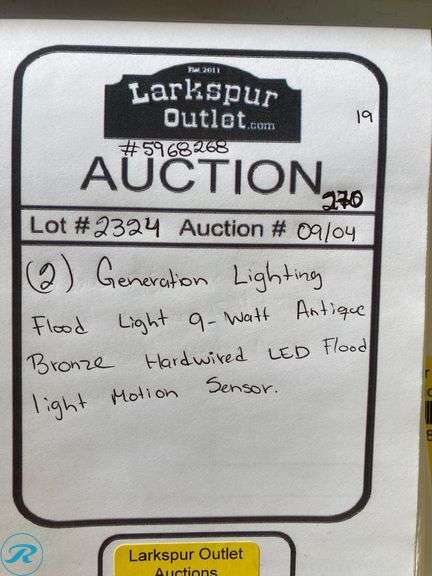 Est. 2011
Larkspur
Outlet.com
19
#5968268
AUCTION
270
Lot # 2324 Auction # 09/04
(2) Generation Lighting
Flood Light 9-Watt Antique
Bronze Hardwired LED Flood
light Motion Sensor.
R
Larkspur Outlet
Auctions